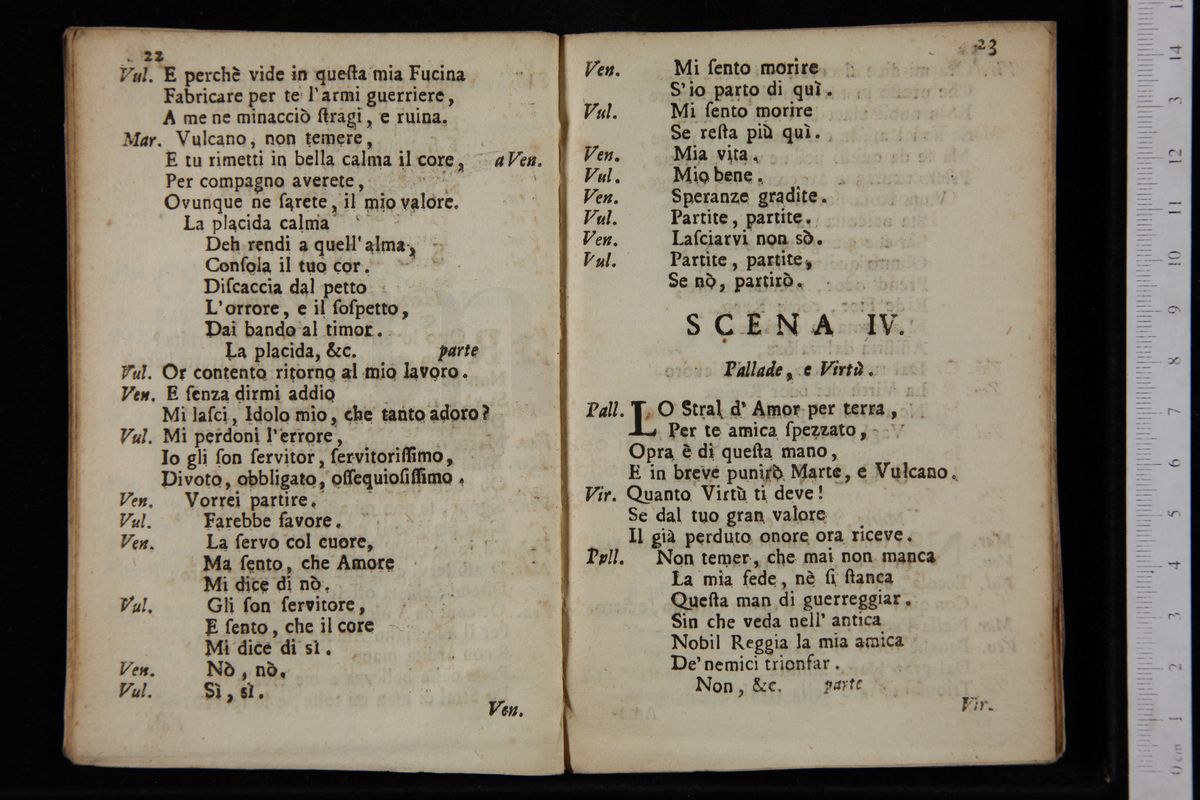 22
Vul. E perchè vide in queſta mia Fucina
Fabricare per te l'armi guerriere,
A me ne minacciò ſtragi, e ruina.
Mar. Vulcano, non temere,
E tu rimetti in bella calma il core, a Ven.
Per compagno averete,
Ovunque ne ſarete, il mio valore.
La placida calma
Deh rendi a quell' alma,
Conſola il tuo cor.
Diſcaccia dal petto
L'orrore, e il ſoſpetto,
Dai bando al timor.
La placida, &c. parte
Vul. Or contento ritorno al mio lavoro.
Ven. E ſenza dirmi addio
Mi laſci, Idolo mio, che tanto adoro?
Vul. Mi perdoni l'errore,
Io gli ſon ſervitor, ſervitoriſſimo,
Divoto, obbligato, oſſequioſiſſimo.
Ven. Vorrei partire.
Vul. Farebbe favore.
Ven. La ſervo col cuore,
Ma ſento, che Amore
Mi dice di nò.
Vul. Gli ſon ſervitore,
E ſento, che il core
Mi dice di sì.
Ven. Nò, nò.
Vul. Sì, sì.
Ven.
23
Ven. Mi ſento morire
S'io parto di quì.
Vul. Mi ſento morire
Se reſta più quì.
Ven. Mia vita.
Vul. Mio bene.
Ven. Speranze gradite.
Vul. Partite, partite.
Ven. Laſciarvi non sò.
Vul. Partite, partite,
Se nò, partirò.
SCENA IV.
Pallade, e Virtù.
Pall. LO Stral d' Amor per terra,
Per te amica ſpezzato,
Opra è di queſta mano,
E in breve punirò Marte, e Vulcano.
Vir. Quanto Virtù ti deve!
Se dal tuo gran valore
Il già perduto onore ora riceve.
Ppll. Non temer, che mai non manca
La mia fede, nè ſi ſtanca
Queſta man di guerreggiar.
Sin che veda nell' antica
Nobil Reggia la mia amica
De' nemici trionfar.
Non, &c. parte
Vir.
14
13
12
11
10
9
8
7
6
5
4
3
2
1
0 cm